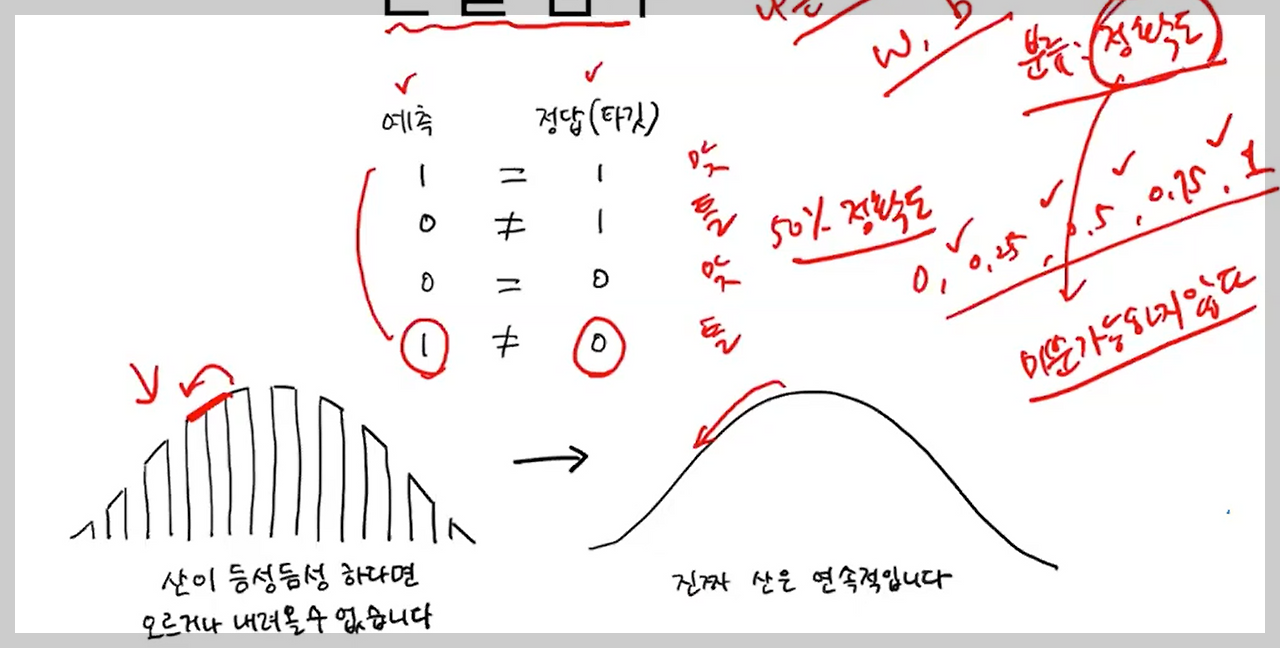 w, b
분류: 정확도
예측 정답(타깃)
1 = 1 맞
0 ≠ 1 틀
50% 정확도
0 = 0 맞
1 ≠ 0 틀
0, 0.25, 0.5, 0.75, 1
미분가능하지 않다
산이 듬성듬성 하다면
오르거나 내려올수 없습니다
진짜 산은 연속적입니다